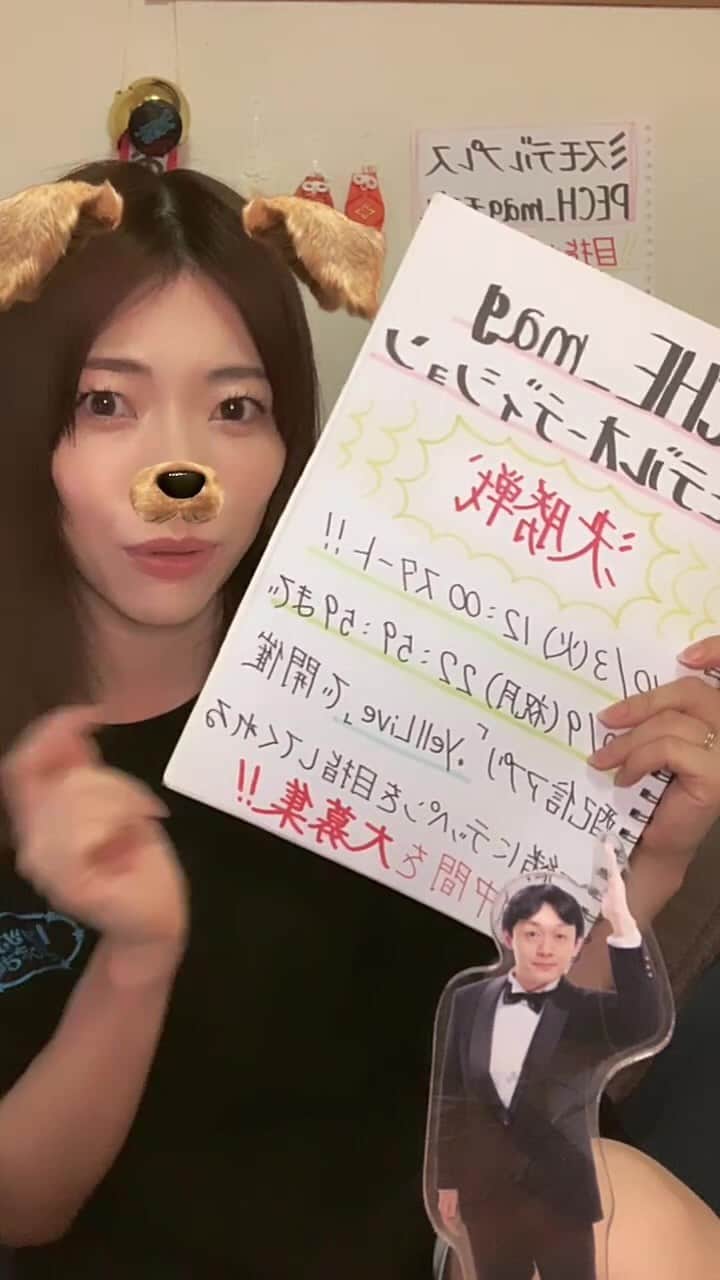 ミスモデルプレス
PECH_mag
目指
CHE_mag
モデルオーディション
決勝戦
10/3(火) 12:00スタート!!
10/9(祝月) 22:59:59まで
配信アプリ「.yellLive」で開催
緒にテッペンを目指してくれる
仲間を大募集!!